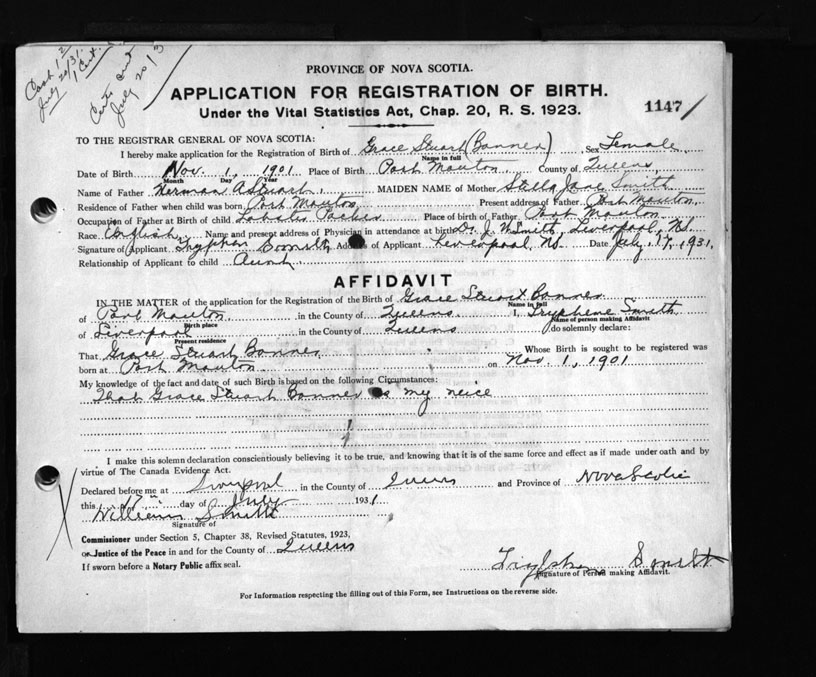 Cash 1
July 20/31.
1 Cert.
Cert sent
July 20/31
PROVINCE OF NOVA SCOTIA.
APPLICATION FOR REGISTRATION OF BIRTH.
Under the Vital Statistics Act, Chap. 20, R. S. 1923.
1147
TO THE REGISTRAR GENERAL OF NOVA SCOTIA:
I hereby make application for the Registration of Birth of Grace Stuart (Banner) Sex Female
Name in full
Date of Birth Nov. 1, 1901 Place of Birth Port Mouton County of Queens
Month Day Year
Name of Father Herman A Stuart MAIDEN NAME of Mother Stella Jane Smith
Residence of Father when child was born Port Mouton Present address of Father Port Mouton
Occupation of Father at Birth of child Lobster Packer Place of birth of Father Port Mouton
Race English Name and present address of Physician in attendance at birth Dr. J. W. Smith, Liverpool, N.S.
Signature of Applicant Tryphena Smith Address of Applicant Liverpool, N.S. Date July 17, 1931.
Relationship of Applicant to child Aunt
AFFIDAVIT
IN THE MATTER of the application for the Registration of the Birth of Grace Stuart Banner
Name in full
of Port Mouton in the County of Queens I, Tryphene Smith
Birth place Name of person making Affidavit
of Liverpool in the County of Queens do solemnly declare:
Present residence
That Grace Stuart Banner Whose Birth is sought to be registered was
born at Port Mouton on Nov. 1, 1901
My knowledge of the fact and date of such Birth is based on the following Circumstances:
That Grace Stuart Banner is my neice
I make this solemn declaration conscientiously believing it to be true, and knowing that it is of the same force and effect as if made under oath and by
virtue of The Canada Evidence Act.
Declared before me at Liverpool in the County of Queens and Province of Nova Scotia
this 17th day of July 1931
William Smith
Signature of
Commissioner under Section 5, Chapter 38, Revised Statutes, 1923,
or Justice of the Peace in and for the County of Queens
If sworn before a Notary Public affix seal.
Tryphena Smith
Signature of Person making Affidavit.
For Information respecting the filling out of this Form, see Instructions on the reverse side.